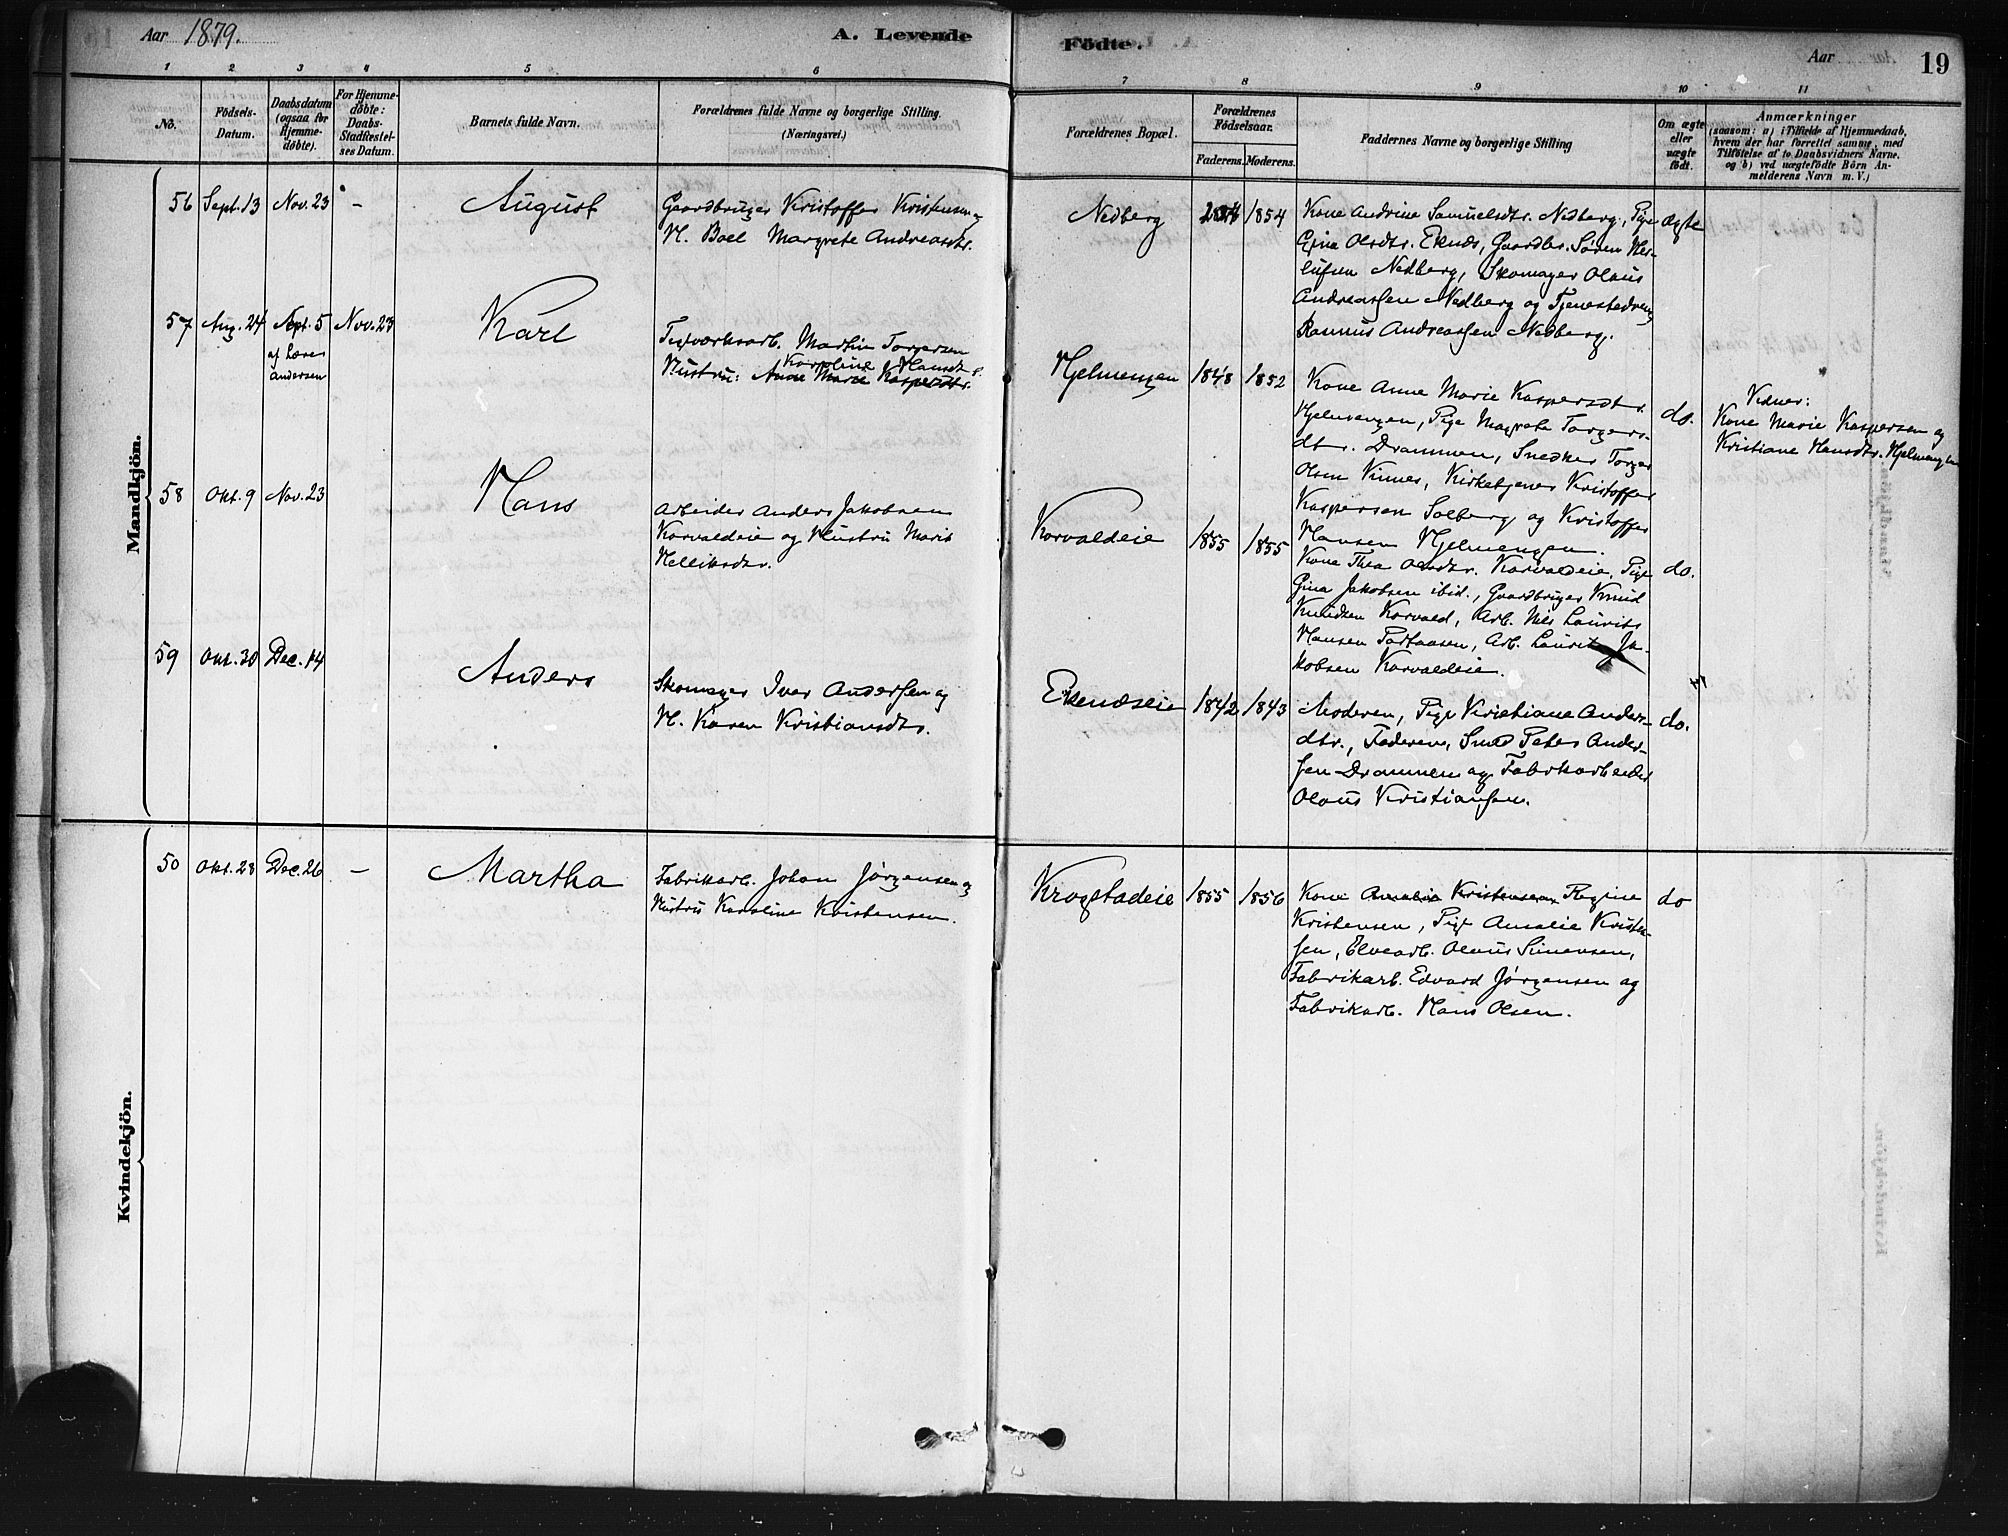 Aar 1879.
A. Levende
Födte.
Aar
19
1 2 3 4 5 6 7 8 9 10 11
No.
Födsels-
Datum.
Daabsdatum
(ogsaa for
Hjemme-
døbte).
For Hjemme-
døbte:
Daabs-
Stadfæstel-
ses Datum.
Barnets fulde Navn.
Forældrenes fulde Navne og borgerlige Stilling.
(Næringsvei.)
Forældrenes Bopæl.
Forældrenes
Födselsaar.
Faderens. Moderens.
Faddernes Navne og borgerlige Stilling
Om ægte
eller
uægte
født.
Anmærkninger
(saasom: a) i Tilfælde af Hjemmedaab,
hvem der har forrettet samme, med
Tilføielse af to Daabsvidners Navne.
og b) ved uægtefødte Börn An-
melderens Navn m. V.)
Mandkjön.
56 Sept. 13 Nov. 23 – August
Gaardbruger Kristoffer Kristensen og
H. Boel Margrete Andreasdtr.
Nedberg 1854
Kone Andrine Samuelsdtr. Nedberg, Pige
Gina Olsdtr. Eknes, Gaardbr. Søren Her-
lufsen Nedberg, Skomager Olaus
Andreassen Nedberg og Tjenestedreng
Rasmus Andreassen Nedberg.
ægte
57 Aug. 24 Sept. 5 Nov. 23 Karl
af Lærer
Andersen
Teglværksarb. Martin Torgersen
Karoline Hansdtr.
Hustru: Anne Marie Kaspersdtr.
Hjelmengen 1848 1852
Kone Anne Marie Kaspersdtr.
Hjelmengen, Pige Magrete Torgers-
dtr. Drammen, Snedker Torger
Olsen Vinnes, Kirketjener Kristoffer
Kaspersen Solberg og Kristoffer
Hansen Hjelmengen.
do.
Vidner:
Kone Marie Kaspersen og
Kristiane Hansdtr. Hjelmengen
58 Okt. 9 Nov. 23 Hans
Arbeider Anders Jakobsen
Korvaldeie og Hustru Marie
Helliksdtr.
Korvaldeie 1855 1855
Kone Thea Olsdtr. Korvaldeie, Pige
Gina Jakobsen ibid., Gaardbruger Knud
Knudsen Korvald, Arb. Nils Laurits
Hansen Portaasen, Arb. Laurits Ja-
kobsen Korvaldeie.
do.
59 Okt. 30 Dec. 14 Anders
Skomager Iver Anderssen og
H. Karen Kristiansdtr.
Eknæseie 1842 1843
Moderen, Pige Kristiane Anders-
dtr., Faderen, Smed Peter Anders-
sen Drammen og Fabrikarbeider
Olaus Kristiansen.
do.
Kvindekjön.
50 Okt. 28 Dec. 26 – Martha
Fabrikarb. Johan Jørgensen og
Hustru Karoline Kristensen.
Krogstadeie 1855 1856
Kone Amalie Kristensen Regine
Kristensen, Pige Amalie Kristen-
sen, Elvearb. Olaus Simensen,
Fabrikarb. Edvard Jørgensen og
Fabrikarb. Hans Olsen.
do